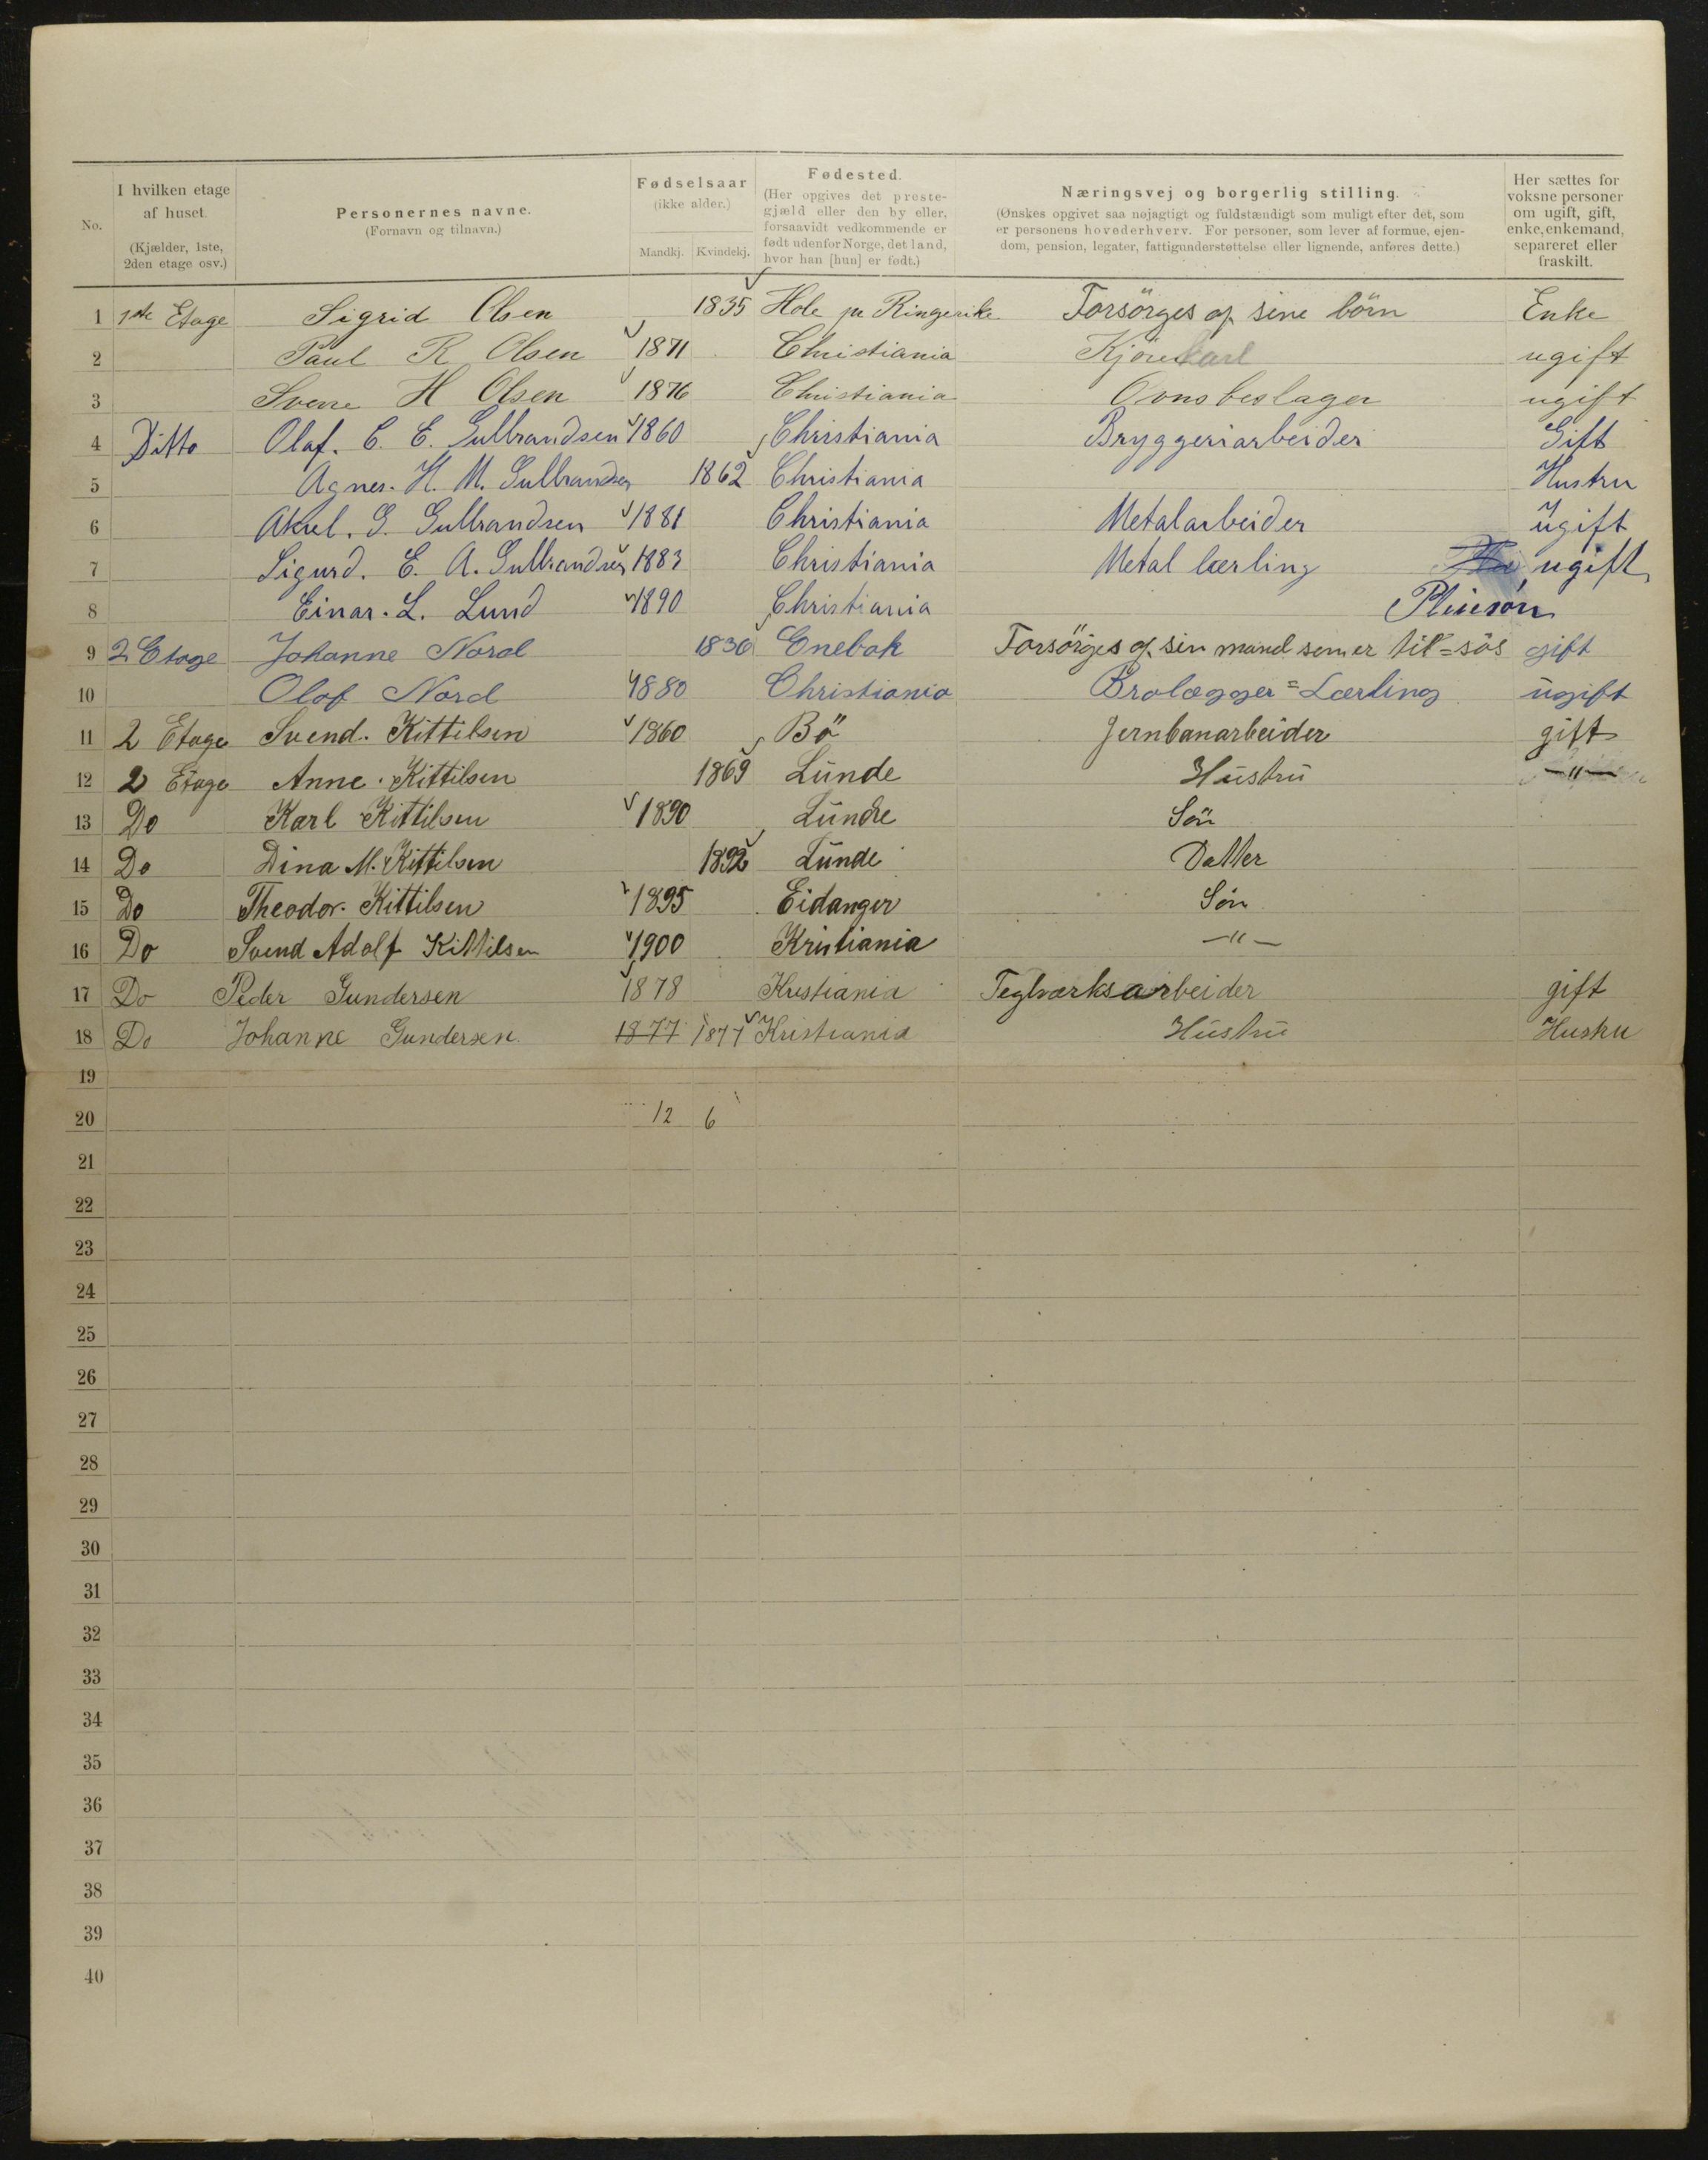 No.
I hvilken etage af huset. (Kjælder, 1ste, 2den etage osv.)
Personernes navne. (Fornavn og tilnavn.)
Fødselsaar (ikke alder.) Mandkj. Kvindekj.
Fødested. (Her opgives det prestegjæld eller den by eller, forsaavidt vedkommende er født udenfor Norge, det land, hvor han [hun] er født.)
Næringsvej og borgerlig stilling. (Ønskes opgivet saa nøjagtigt og fuldstændigt som muligt efter det, som er personens hovederhverv. For personer, som lever af formue, ejendom, pension, legater, fattigunderstøttelse eller lignende, anføres dette.)
Her sættes for voksne personer om ugift, gift, enke, enkemand, separeret eller fraskilt.
1 1ste Etage Sigrid Olsen 1835 Hole pr Ringerike Forsörges af sine börn Enke
2 Paul R Olsen 1871 Christiania ugift
3 H Olsen 1876 Christiania Ovnsbeslager ugift
4 Ditto Olaf. C. E. Gulbrandsen 1860 Christiania Bryggeriarbeider Gift
5 Agnes. H. M. Gulbrandsen 1862 Christiania Hustru
6 Aksel. G. Gulbrandsen 1881 Christiania Metalarbeider Ugift
7 Sigurd. E. A. Gulbrandsen 1883 Christiania Metal lærling ugift
8 Einar. L. Lund 1890 Christiania Pleiesøn
9 2 Etage Johanne Nord 1830 Enebak Forsörges af sin mand som er til=søs gift
10 Olaf Nord 1880 Christiania Brolægger=Lærling ugift
11 2 Etage Svend. Kittilsen 1860 Bö Jernbanarbeider gift
12 2 Etage Anne. Kittilsen 1869 Lunde Hustru —"—
13 Do Karl Kittilsen 1890 Lunde Sön
14 Do Dina M. Kittilsen 1892 Lunde Datter
15 Do Theodor. Kittilsen 1895 Eidanger Søn
16 Do Svend Adolf Kittilsen 1900 Kristiania —"—
17 Do Peder Gundersen 1878 Kristiania Teglværksarbeider gift
18 Do Johanne Gundersen 1877 1877 Kristiania Hustru Hustru
19
20 12 6
21
22
23
24
25
26
27
28
29
30
31
32
33
34
35
36
37
38
39
40